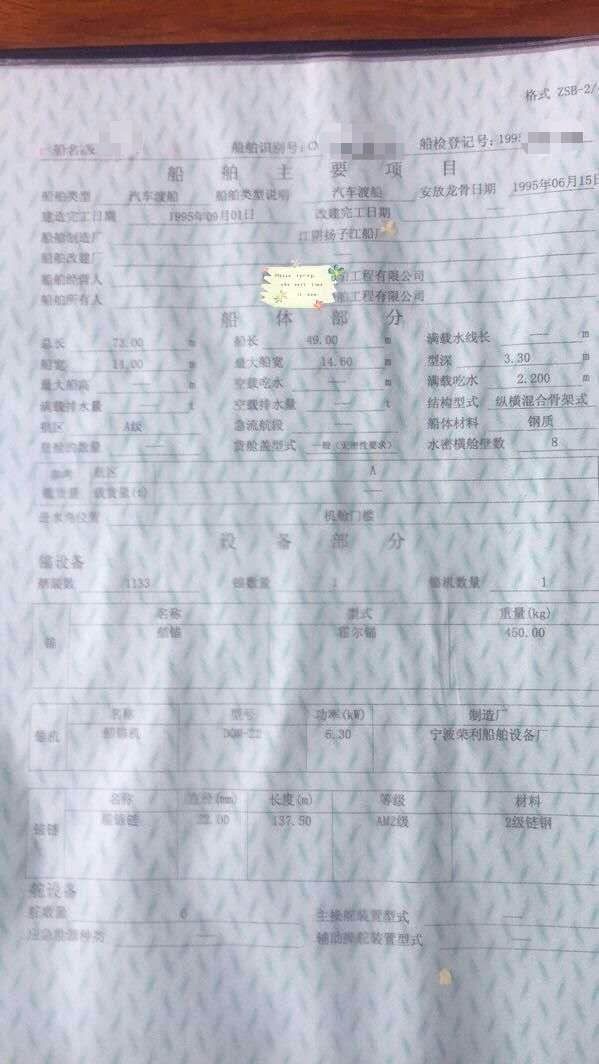 格式 ZSB-2/
船名 船舶识别号:CN 船检登记号:1995
船舶主要项目
船舶类型 汽车渡船 船舶类型说明 汽车渡船 安放龙骨日期 1995年06月15日
建造完工日期 1995年09月01日 改建完工日期
船舶制造厂 江阴扬子江船厂
船舶改建厂
船舶经营人 工程有限公司
船舶所有人 船工程有限公司
船体部分
总长 73.00 m 船长 49.00 m 满载水线长 —— m
船宽 14.00 m 最大船宽 14.60 m 型深 3.30 m
最大船高 —— m 空载吃水 —— m 满载吃水 2.200 m
满载排水量 —— t 空载排水量 —— t 结构型式 纵横混合骨架式
航区 A级 急流航段 —— 船体材料 钢质
—— 货舱盖型式 一般(无密性要求) 水密横舱壁数 8
航区 A
载货量(t) ——
进水角位置 机舱门槛
设备部分
锚设备
舾装数 1133 锚数量 1 锚机数量 1
名称 型式 重量(kg)
锚 艏锚 霍尔锚 450.00
名称 型号 功率(kW) 制造厂
锚机 6.30 宁波荣利船舶设备厂
名称 直径(mm) 长度(m) 等级 材料
锚链 22.00 137.50 AM2级 2级链钢
舵设备
舵数量 0 主操舵装置型式 ——
应急能源种类 —— 辅助操舵装置型式 ——